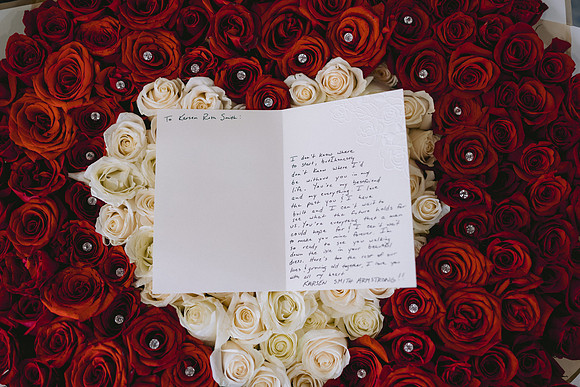 To Karsen Rose Smith:
I don't know where
to start, but honestly
don't know where I'd
be without you in my
life. You're my bestfriend
and my everything. I love
the past you & I have
built and I can't wait to
see what the future holds for
us. You're everything that a man
could hope for & I can't wait
to make you mine forever. I am
so ready to see you walking
down the isle in your beautiful
dress. Here's to the rest of our
lives & growing old together, I love you
with all my heart.
KARSEN SMITH ARMSTRONG!!